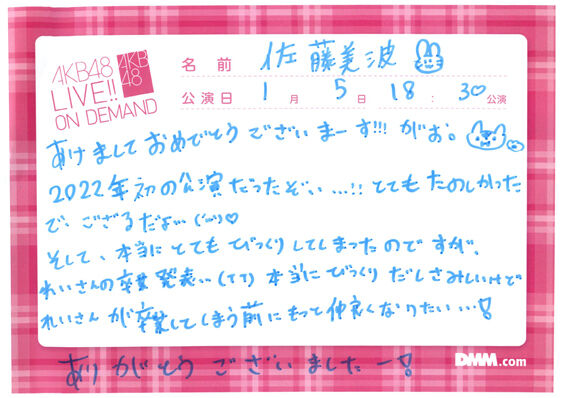 AKB48
LIVE!!
ON DEMAND
AKB
48
名前 佐藤美波
公演日 1月 5日 18:30公演
あけましておめでとうございまーす!!! がお。
2022年初の公演だったぞい...!! とてもたのしかった
で、ござるだよ...
そして、本当にとてもびっくりしてしまったのですが、
れいさんの卒業発表..(TT) 本当にびっくりだしさみしいけど
れいさんが卒業してしまう前にもっと仲良くなりたい...!
ありがとうございましたー!
DMM.com